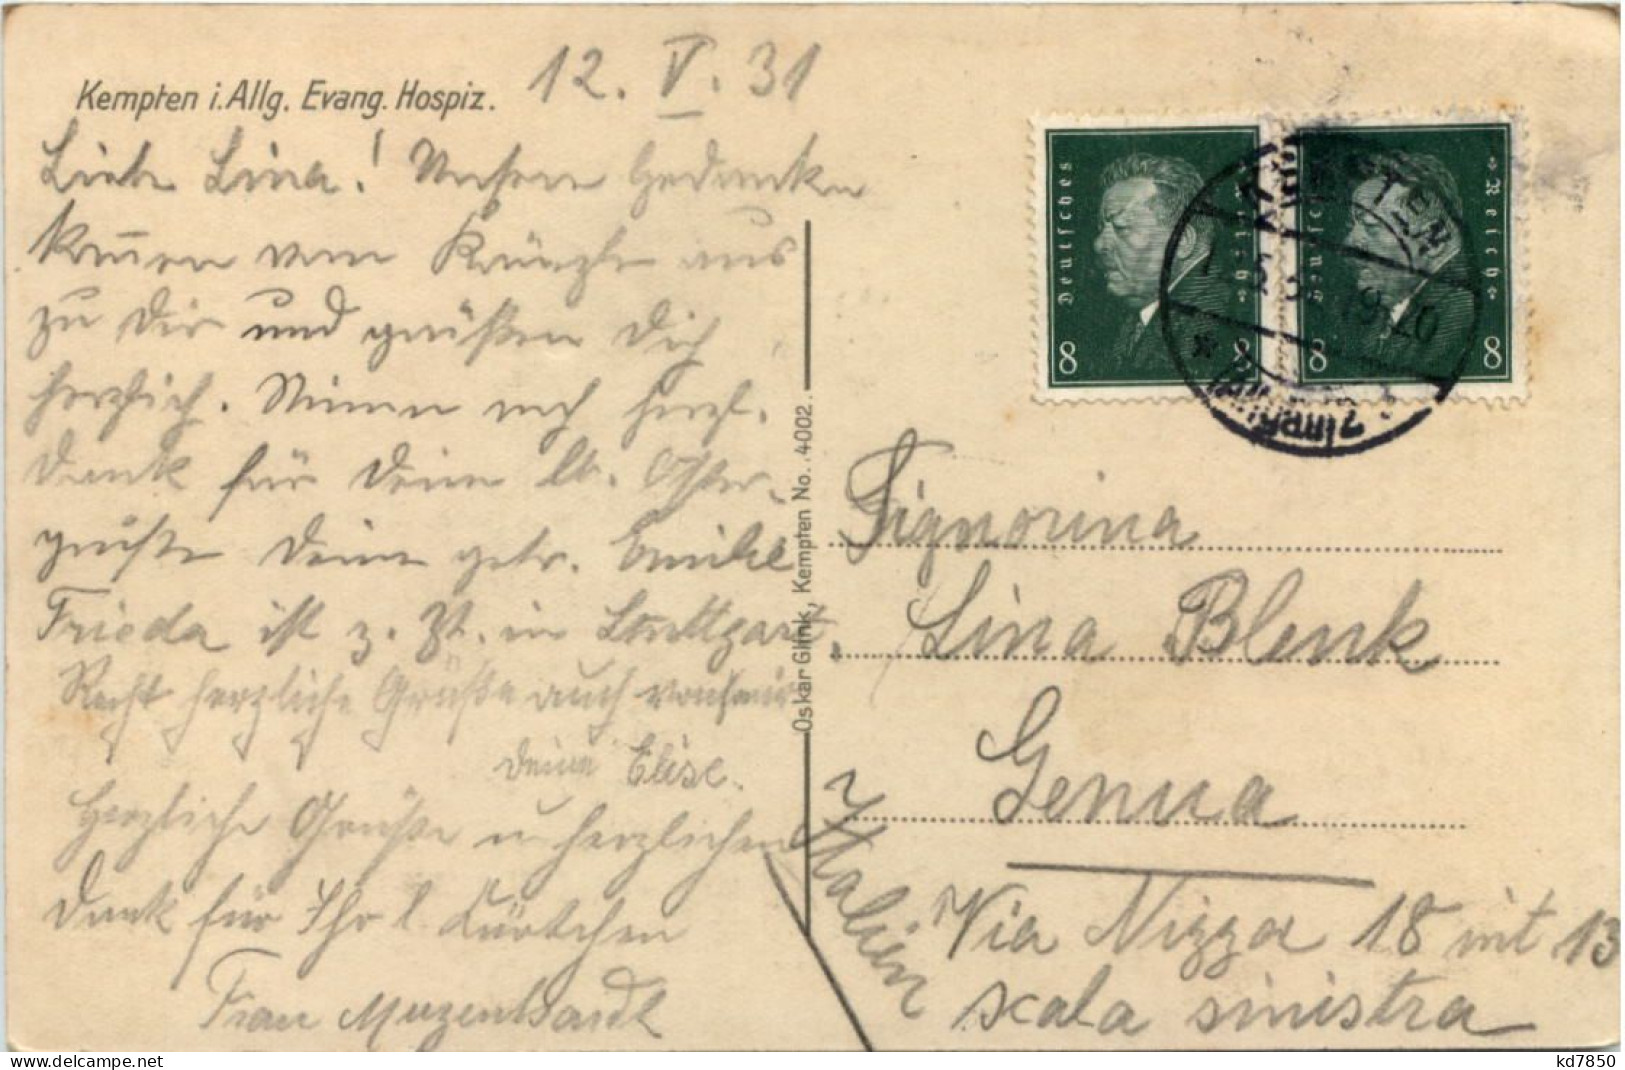 Kempten i. Allg. Evang. Hospiz.
12. V. 31
Liebe Lina! Unsere Gedanken
kommen vom Kränzle aus
zu Dir und grüßen Dich
herzlich. Nimm noch herzl.
Dank für Deine lb. Oster-
grüße Deine getr. Emilie
Frieda ist z. Zt. in Stuttgart.
Recht herzliche Grüße auch von
Deine Elise.
Herzliche Grüße u herzlichen
Dank für Ihr l. Kärtchen
Frau
Oskar Glink, Kempten No. 4002.
Deutsches Reich
8 8
Deutsches Reich
8 8
KEMPTEN
19-20
Signorina
Lina Blenk
Genua
Italien
Via Nizza 18 int 13
scala sinistra
hippostcard.com
kd7850